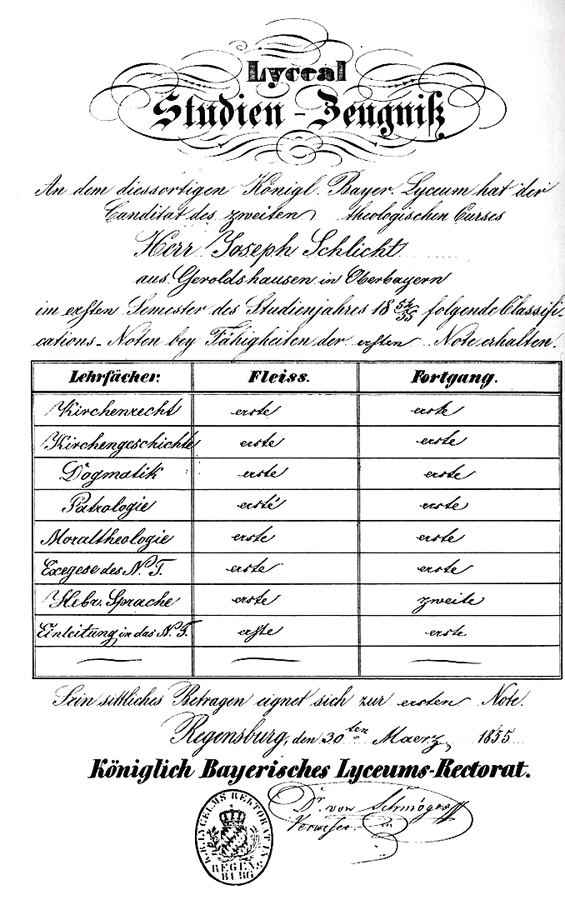 Lyceal
Studien-Zeugniß
An dem diessortigen Königl. Bayer. Lyceum hat der
Candidat des zweiten theologischen Curses
Herr Joseph Schlicht
aus Geroldshausen in Oberbayern
im ersten Semester des Studienjahres 18 54/55 folgende Classifi-
cations-Noten bey Fähigkeiten der ersten Note erhalten.
Lehrfächer: Fleiss. Fortgang.
Kirchenrecht erste erste
Kirchengeschichte erste erste
Dogmatik erste erste
Patrologie erste erste
Moraltheologie erste erste
Exegese des N. T. erste erste
Hebr. Sprache erste zweite
Einleitung in das N. T. erste erste
Sein sittliches Betragen eignet sich zur ersten Note.
Regensburg, den 30ten Maerz 1855
Königlich Bayerisches Lyceums-Rectorat.
Dr. von Schmöger
Verweser
LYCEUMS REKTORAT IN
REGENS
BURG